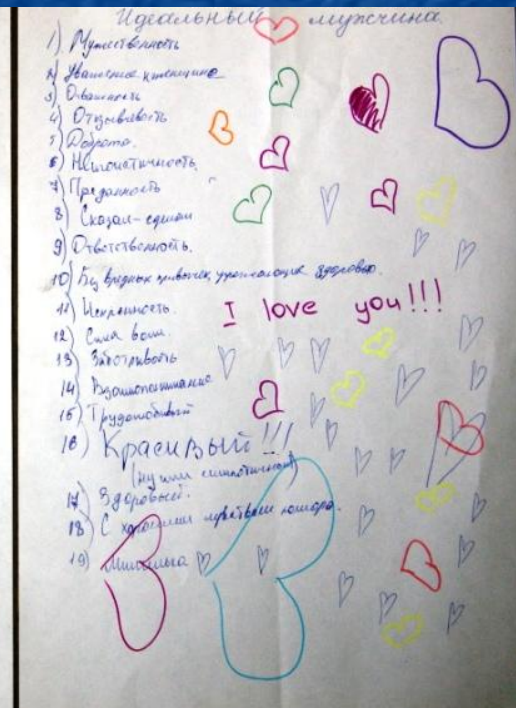 Идеальный мужчина
1). Мужественность
2) Уважение к женщине
3) Отважность
4) Отзывчивость
5) Доброта.
6) Неэгоистичность.
7) Преданность
8) Сказал-сделал
9) Ответственность.
10) Без вредных привычек, укрепляющие здоровье.
11) Искренность.
I love you!!!
12) Сила воли.
13) Заботливость
14) Взаимопонимание
15) Трудолюбивый
16) Красивый!!!
(ну или симпатичный)
17) Здоровый.
18) С хорошим чувством юмора.
19)